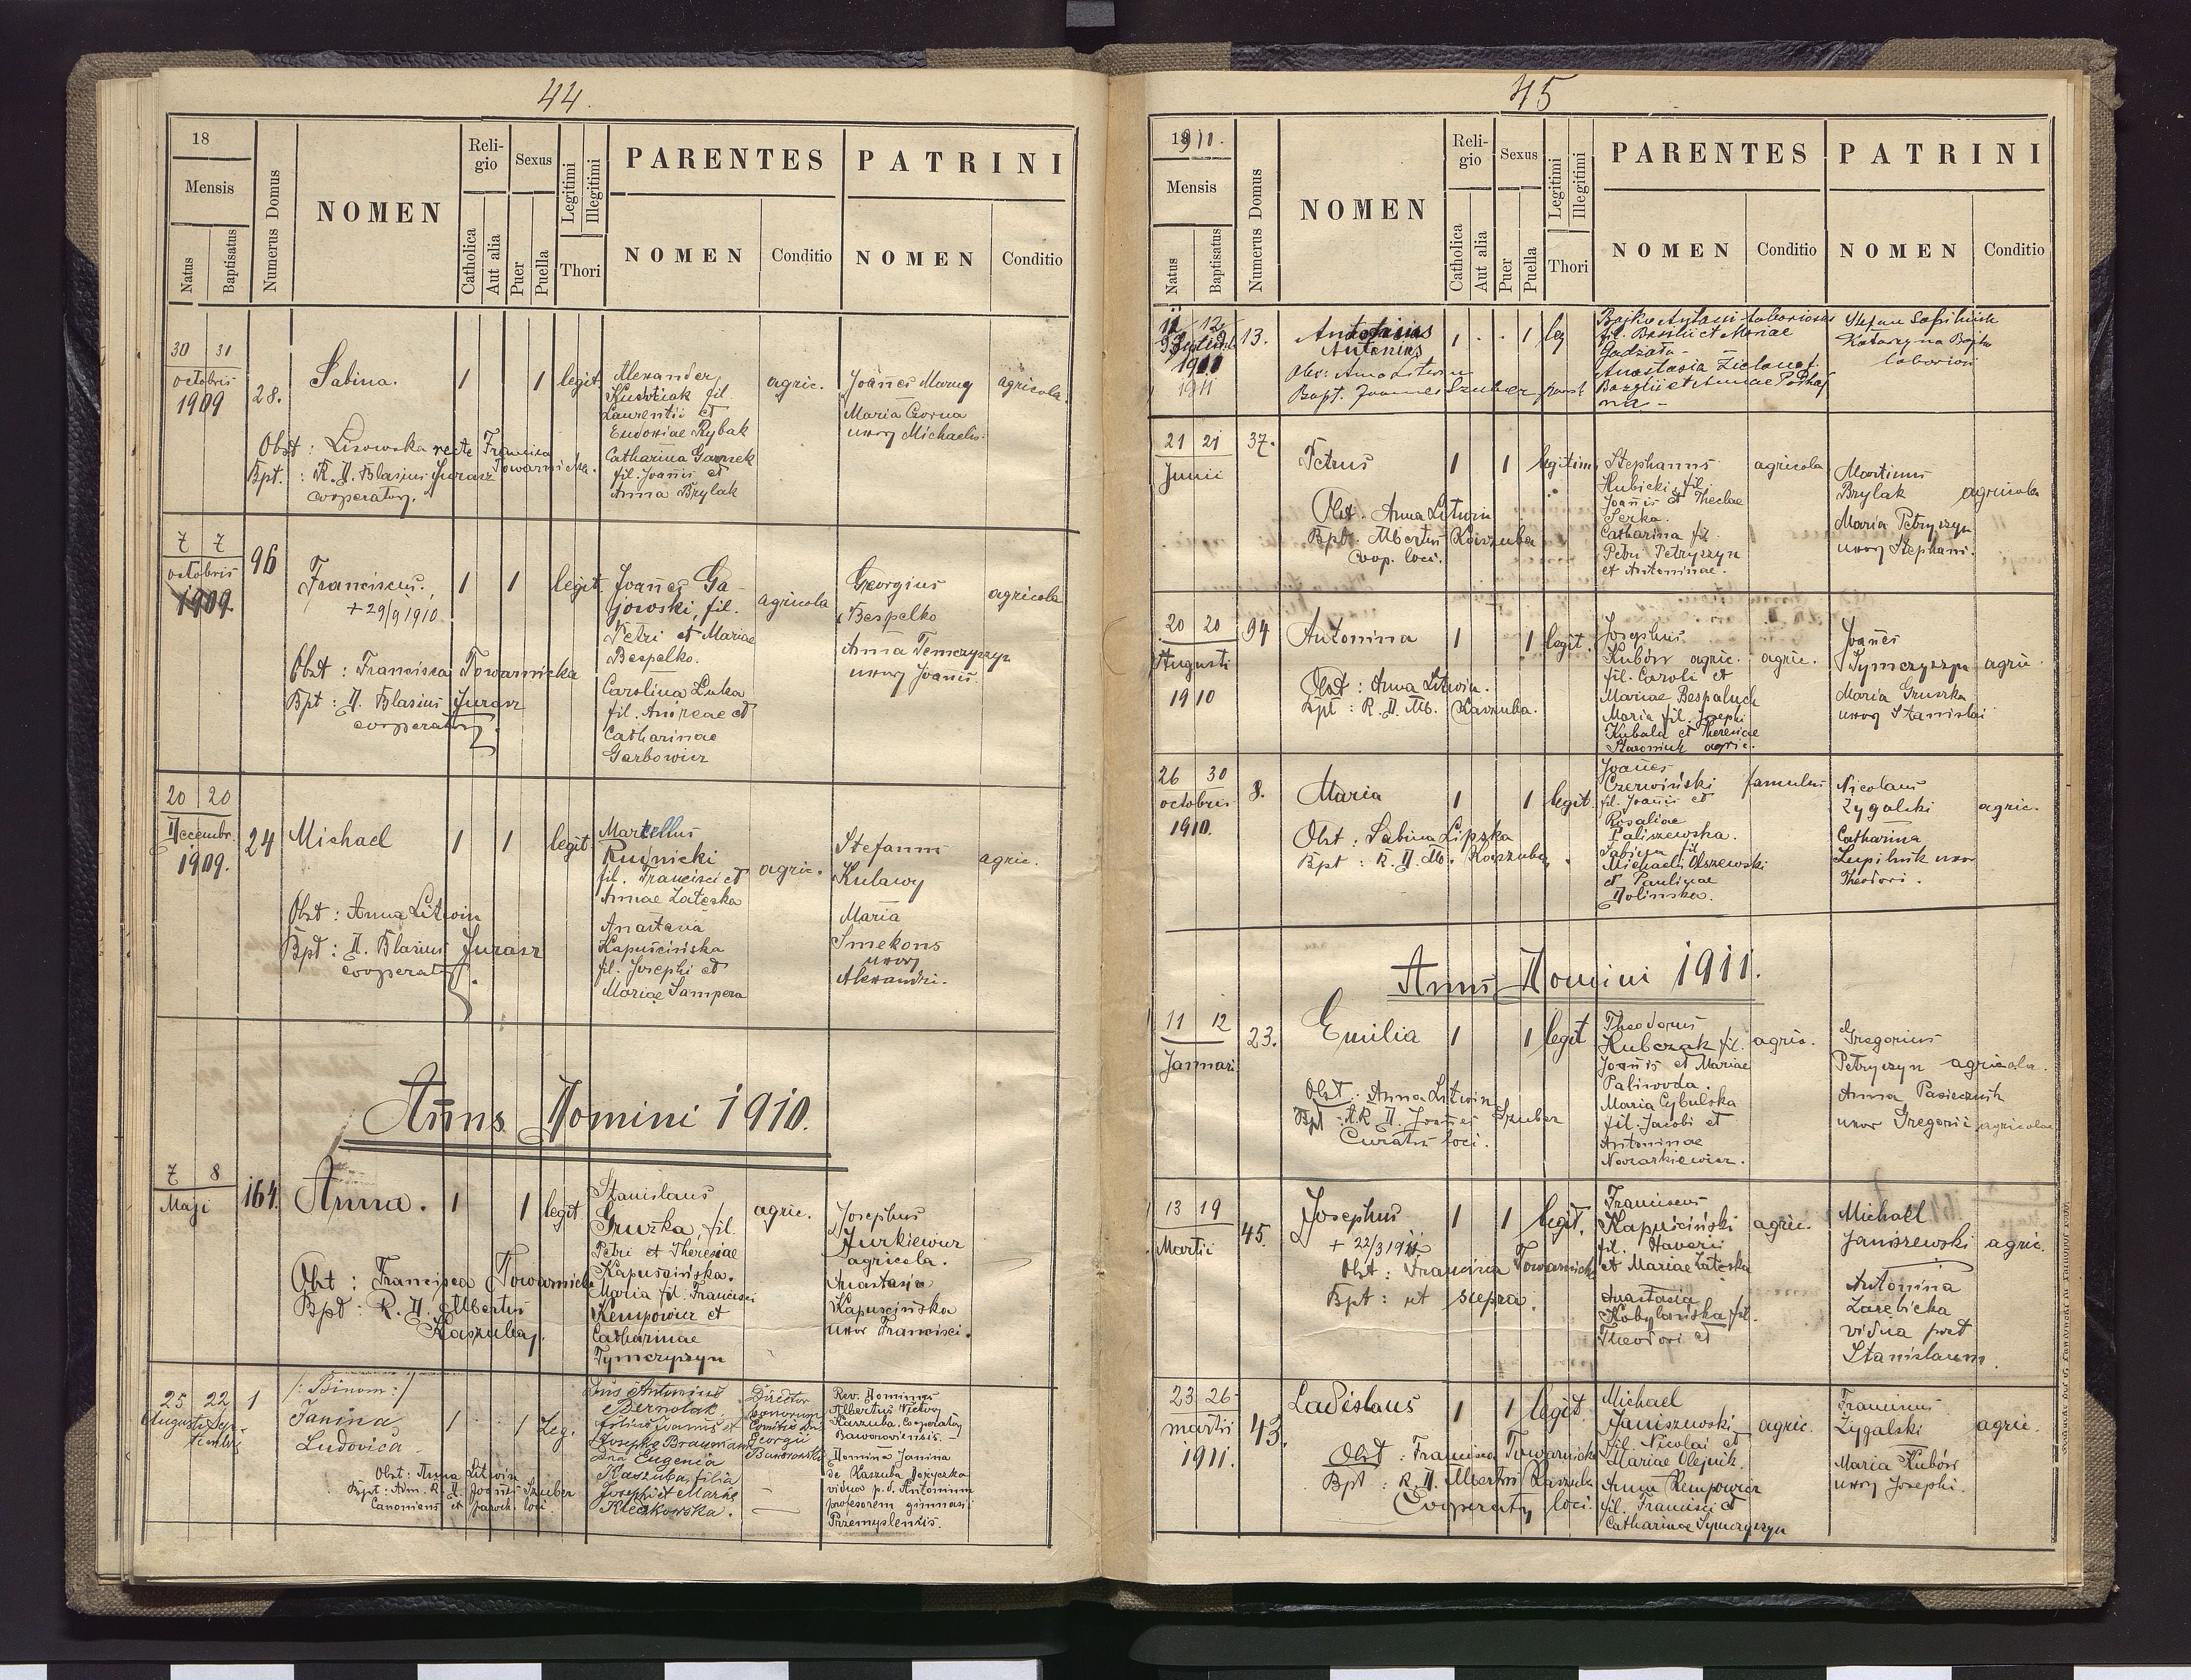 44.
18
Mensis
Natus
Baptisatus
Numerus Domus
NOMEN
Reli-
gio
Catholica
Aut alia
Sexus
Puer
Puella
Legitimi
Illegitimi
Thori
PARENTES
NOMEN
Conditio
PATRINI
NOMEN
Conditio
30 31
octobris
1909
28.
Sabina.
1 1 legit
Alexander
fil.
Laurentii et
Eudoxiae Rybak
Catharina Garnek
fil. Joannis et
Anna Brylak
agric.
Joannes Marny
Maria Czorna
uxor Michaelis.
agricola.
Obst : Lisowska recte Francisca
Towarnicka.
Bpt. : R. D. Blasius Jurasz
cooperator.
7 7
octobris
1909
96
Franciscus.
+ 29/9 1910
1 1 legit
Joannes Ga-
jowski, fil.
Petri et Mariae
Bespelko.
Carolina Luka
fil. Andreae et
Catharinae
Garbowicz
agricola
Georgius
Bespelko
Anna Temczyszyn
uxor Joannis.
agricola
Obst : Francisca Towarnicka
Bpt : D. Blasius Jurasz
cooperator.
20 20
Decembr.
1909.
24
Michael
1 1 legit
Martellus
Rudnicki
fil. Francisci et
Annae Zateska
Anastasia
Kapuścińska
fil. Josephi et
Mariae Sampera
agric.
Stefanus
Kulawy
Maria
Smekons
uxor
Alexandri.
agric.
Obst : Anna Litwin
Bpt : D. Blasius Jurasz
cooperator.
Annus Domini 1910.
7 8
Maji
164.
Anna.
1 1 legit
Stanislaus
Gruszka, fil.
Petri et Theresiae
Kapuścińska.
Maria fil. Francisci
Kempowicz et
Catharinae
Tymczyszyn
agric.
Josephus
Jurkiewicz
agricola.
Anastasia
Kapuscińska
uxor Francisci.
Obst : Francisca Towarnicka
Bpt : R. D. Albertus
Kaszuba.
25 22
Augusti Sep-
tembris
1
/: Binom :/
Janina
Ludovica
1 1 Leg.
Dnus Antonius
Bernolak
filius Joannis et
Josepha Brauman
Dna Eugenia
Kaszuba, filia
Josephi et Mariae
Kleczkowska.
Director
bonorum
Comitis Dni
Georgii
Baworowski
Rev. Dominus
Albertus Victor
Kaszuba, Cooperator
Baworoviensis.
Domina Janina
de Kaszuba Dożyczka
vidua p. d. Antonium
profesorem gimnasii
Przemyslensis.
Obst: Anna Litwin
Bpt: Adm. R. D. Joannes Szuber
Canonicus et paroch. loci.
45
1910.
Mensis
Natus
Baptisatus
Numerus Domus
NOMEN
Reli-
gio
Catholica
Aut alia
Sexus
Puer
Puella
Legitimi
Illegitimi
Thori
PARENTES
NOMEN
Conditio
PATRINI
NOMEN
Conditio
11 12
1910
1911
13.
Antonius
Antonius
1 . . 1 leg
Bojko Antoni laboriosus
fil. Basilii et Mariae
Gadzała -
Anastasia
Bazylii et Annae
na -
Stefan
Katarzyna Bojko
laboriosi
Obs: Anna Litwin
Bapt. Joannes Szuber, paroch
21 21
Junii
37.
Petrus
1 1 legitim.
Stephanus
Kubicki, fil.
Joannis et Theclae
Serka.
Catharina fil.
Petri Petryszyn
et Antoninae.
agricola
Martinus
Brylak
Maria Petryszyn
uxor Stephani.
agricola
Obst. Anna Litwin
Bpt. Albertus Kaszuba
coop. loci.
20 20
Augusti
1910
94
Antonina
1 1 legit.
Josephus
Kubów agric.
fil. Caroli et
Mariae Bespaluch
Maria fil. Josephi
Kubala et Theresiae
agric.
agric.
Joannes
Tymczyszyn
Maria Gruszka
uxor Stanislai
agric.
Obst : Anna Litwin.
Bpt : R. D. Alb. Kaszuba.
26 30
octobris
1910.
8.
Maria
1 1 legit.
Joannes
Czerwiński
fil. Joannis et
Rosaliae
Paliszewska.
Sabina fil.
Michaelis Olszewski
et Paulinae
Dolińska.
famulus
Nicolaus
Zygalski
Catharina
Lupilnik uxor
Theodori.
agric.
Obst : Sabina Lipska
Bpt : R. D. Alb. Kaszuba
Annus Domini 1911.
11 12
Januari
23.
Emilia
1 1 legit
Theodorus
Kubczak fil.
Joannis et Mariae
Paliwoda.
Maria Cybulska
fil. Jacobi et
Antoninae
Nowarkiewicz.
agric.
Gregorius
Petryszyn agricola.
Anna Pasiecznik
uxor Gregorii agricolae
Obst : Anna Litwin
Bpt : A. R. D. Joannes Szuber
Curatus loci.
13 19
Martii
45.
Josephus
+ 22/3 1911
1 1 legit.
Franciscus
Kapuściński
fil. Xaverii
et Mariae Zateska
Anastasia
Kobylańska fil.
Theodori et
agric.
Michael
Janiszewski
Antonina
Zarebicka
vidua post
Stanislaum.
agric.
Obst : Francisca Towarnicka
Bpt : ut supra.
23 26
martii
1911.
43.
Ladislaus
1 1 legit.
Michael
Janiszewski
fil. Nicolai et
Mariae Olejnik.
Anna Kempowicz
fil. Francisci et
Catharinae Tymczyszyn
agric.
Franciscus
Zygalski
Maria Kubów
uxor Josephi.
agric.
Obst : Francisca Towarnicka
Bpt : R. D. Albertus Kaszuba
Cooperator loci.